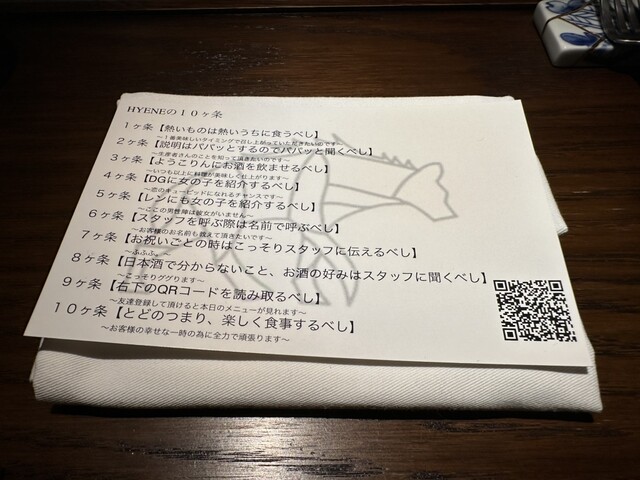 HYENEの１０ヶ条
１ヶ条【熱いものは熱いうちに食うべし】
～１番美味しいタイミングで召し上がっていただきたいのです～
２ヶ条【説明はパパッとするのでパパッと聞くべし】
～生産者さんのことを知って頂きたいのです～
３ヶ条【ようこりんにお酒を飲ませるべし】
～いつも以上に料理が美味しく仕上がります～
４ヶ条【DGに女の子を紹介するべし】
～恋のキューピッドになれるチャンスです～
５ヶ条【レンにも女の子を紹介するべし】
～ここの男性陣は彼女がいません～
６ヶ条【スタッフを呼ぶ際は名前で呼ぶべし】
～お客様のお名前も教えて頂きたいです～
７ヶ条【お祝いごとの時はこっそりスタッフに伝えるべし】
～ふふふ～
８ヶ条【日本酒で分からないこと、お酒の好みはスタッフに聞くべし】
～こっそりググります～
９ヶ条【右下のQRコードを読み取るべし】
～友達登録して頂けると本日のメニューが見れます～
１０ヶ条【とどのつまり、楽しく食事するべし】
～お客様の幸せな一時の為に全力で頑張ります～